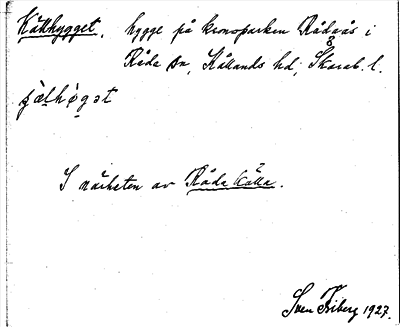 Källhygget. hygge på kronoparken Rådaås i
Råda sn, Kållands hd, Skarab. l.
I närheten av Råda källa.
Sven Friberg 1927.